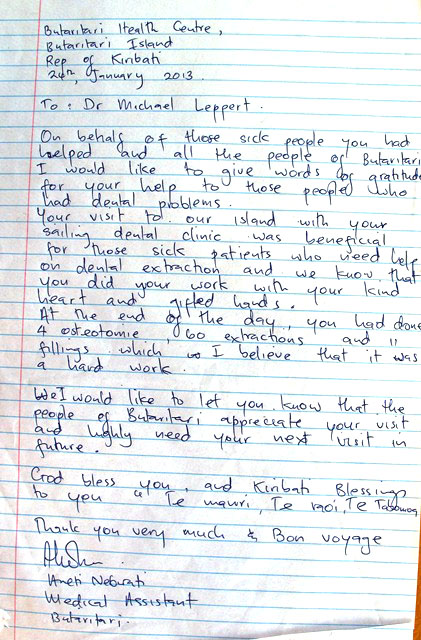 Butaritari Health Centre,
Butaritari Island
Rep of Kiribati
24th, January 2013.
To: Dr Michael Leppert.
On behalf of those sick people you had
helped and all the people of Butaritari
I would like to give words of gratitude
for your help to those people who
had dental problems.
Your visit to our island with your
sailing dental clinic was beneficial
for those sick patients who need help
on dental extraction and we know that
you did your work with your kind
heart and gifted hands.
At the end of the day, you had done
4 osteotomie, 60 extractions and 11
fillings which I believe that it was
a hard work.
We I would like to let you know that the
people of Butaritari appreciate your visit
and highly need your next visit in
future.
God bless you, and Kiribati Blessings
to you " Te mauri, Te raoi, Te Tabomoa
Thank you very much & Bon voyage
Medical Assistant
Butaritari.